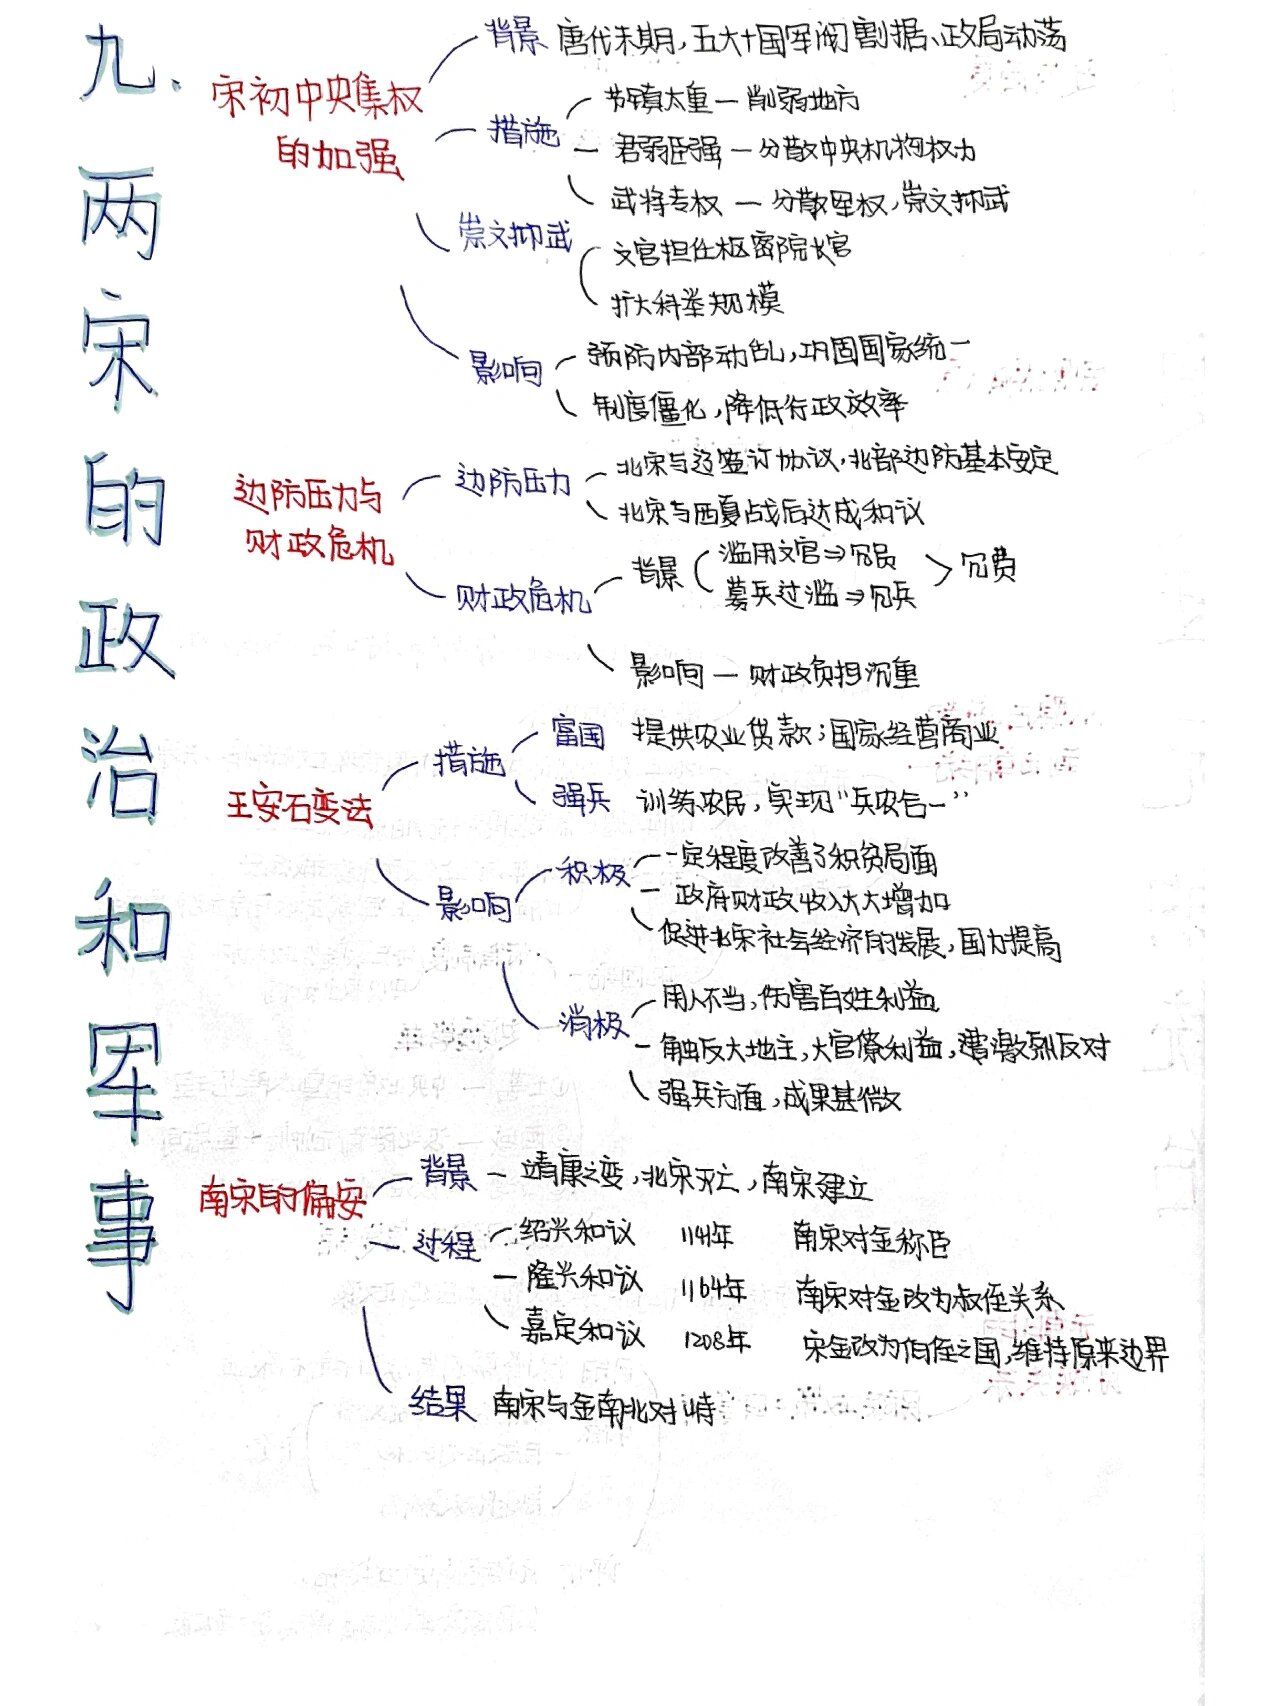 九、两宋的政治和军事
宋初中央集权
的加强
背景 唐代末期,五大十国军阀割据、政局动荡
措施
节镇太重 — 削弱地方
君弱臣强 — 分散中央机构权力
武将专权 — 分散军权,崇文抑武
崇文抑武
文官担任枢密院长官
扩大科举规模
影响
预防内部动乱,巩固国家统一
制度僵化,降低行政效率
边防压力与
财政危机
边防压力
北宋与辽签订协议,北部边防基本安定
北宋与西夏战后达成和议
财政危机
背景
滥用文官⇒冗员
募兵过滥⇒冗兵
冗费
影响 — 财政负担沉重
王安石变法
措施
富国 提供农业贷款;国家经营商业
强兵 训练农民,实现“兵农合一”
影响
积极
一定程度改善了积贫局面
政府财政收入大大增加
促进北宋社会经济的发展,国力提高
消极
用人不当,伤害百姓利益
触及大地主,大官僚利益,遭激烈反对
强兵方面,成果甚微
南宋的偏安
背景 — 靖康之变,北宋灭亡,南宋建立
过程
绍兴和议 1141年 南宋对金称臣
隆兴和议 1164年 南宋对金改为叔侄关系
嘉定和议 1208年 宋金改为伯侄之国,维持原来边界
结果 南宋与金南北对峙